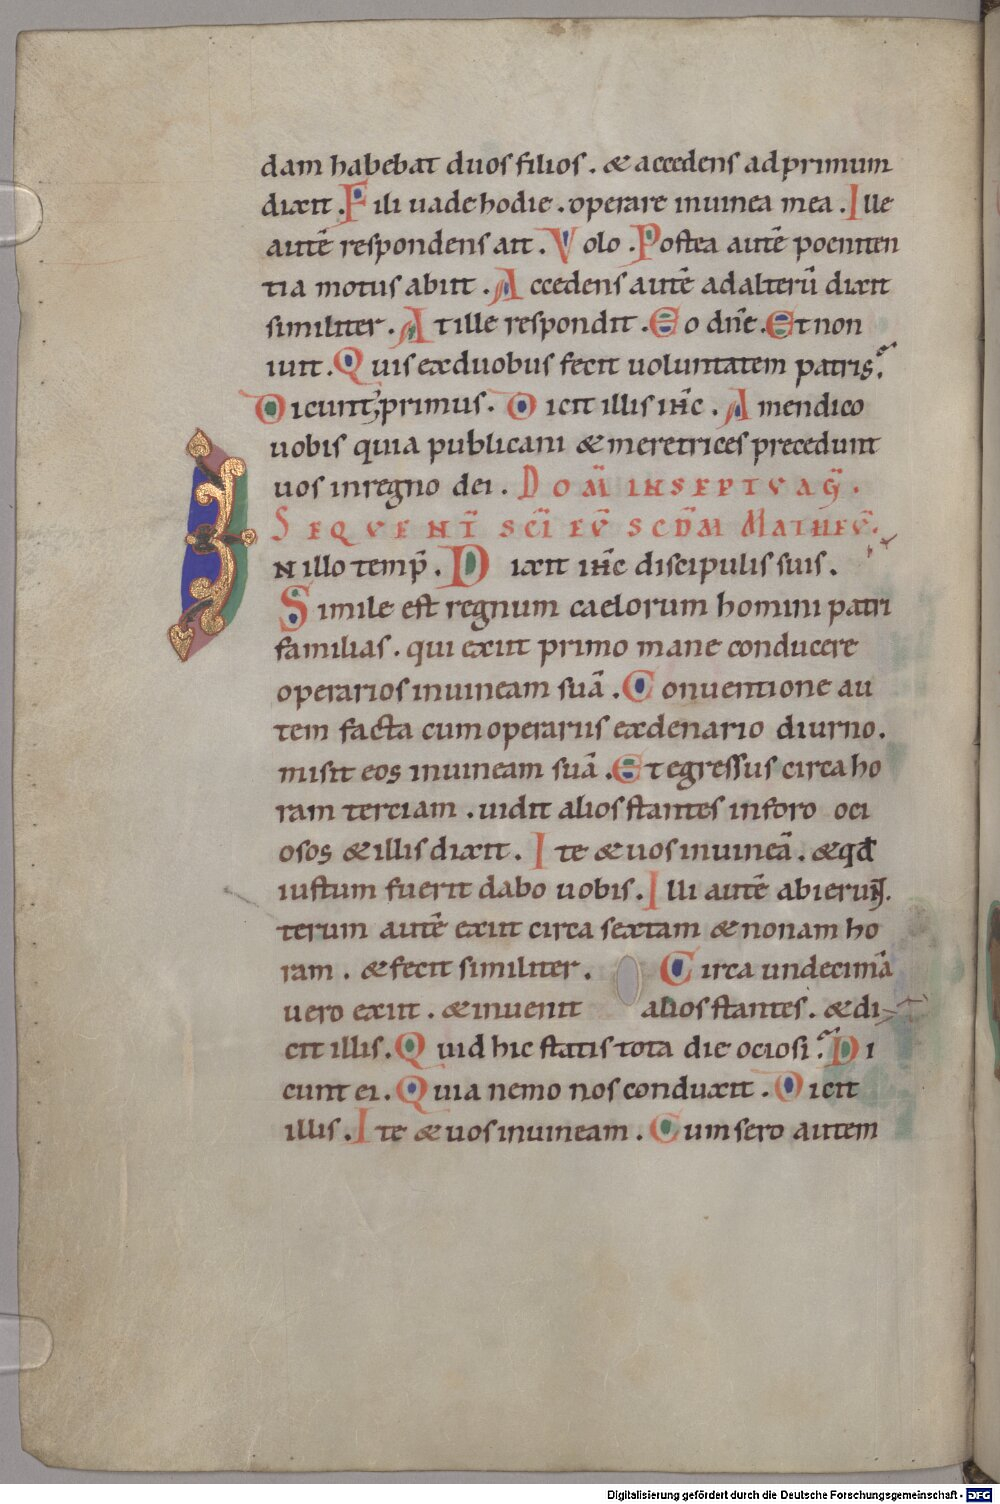 dam habebat duos filios . & accedens ad primum
dixit . Fili uade hodie . operare inuinea mea . Ille
autē respondens ait . Volo . Postea autē poeniten
tia motus abiit . Accedens autē ad alterū dixit
similiter . At ille respondit . Eo dn̄e . Et non
iuit . Quis ex duobus fecit uoluntatem patris?
Dicunt; primus . Dicit illis ih̄c . Amen dico
uobis quia publicani & meretrices precedunt
uos in regno dei . DOM̄ IN SEPTVAḠ .
SEQVENT̄ SC̄I EV̄ SCDM̄ MATHEV̄ .
IN illo temp̄ . Dixit ih̄c discipulis suis .
Simile est regnum caelorum homini patri
familias . qui exiit primo mane conducere
operarios inuineam suā . Conuentione au
tem facta cum operariis ex denario diurno .
misit eos inuineam suā . Et egressus circa ho
ram terciam . uidit alios stantes in foro oci
osos & illis dixit . Ite & uos inuineā . & qd̄
iustum fuerit dabo uobis . Illi autē abierunt . I
terum autē exiit circa sextam & nonam ho
ram . & fecit similiter . Circa undecimā
uero exiit . & inuenit alios stantes . & di
cit illis . Quid hic statis tota die ociosi? Di
cunt ei . Quia nemo nos conduxit . Dicit
illis . Ite & uos inuineam . Cum sero autem
Digitalisierung gefördert durch die Deutsche Forschungsgemeinschaft - DFG